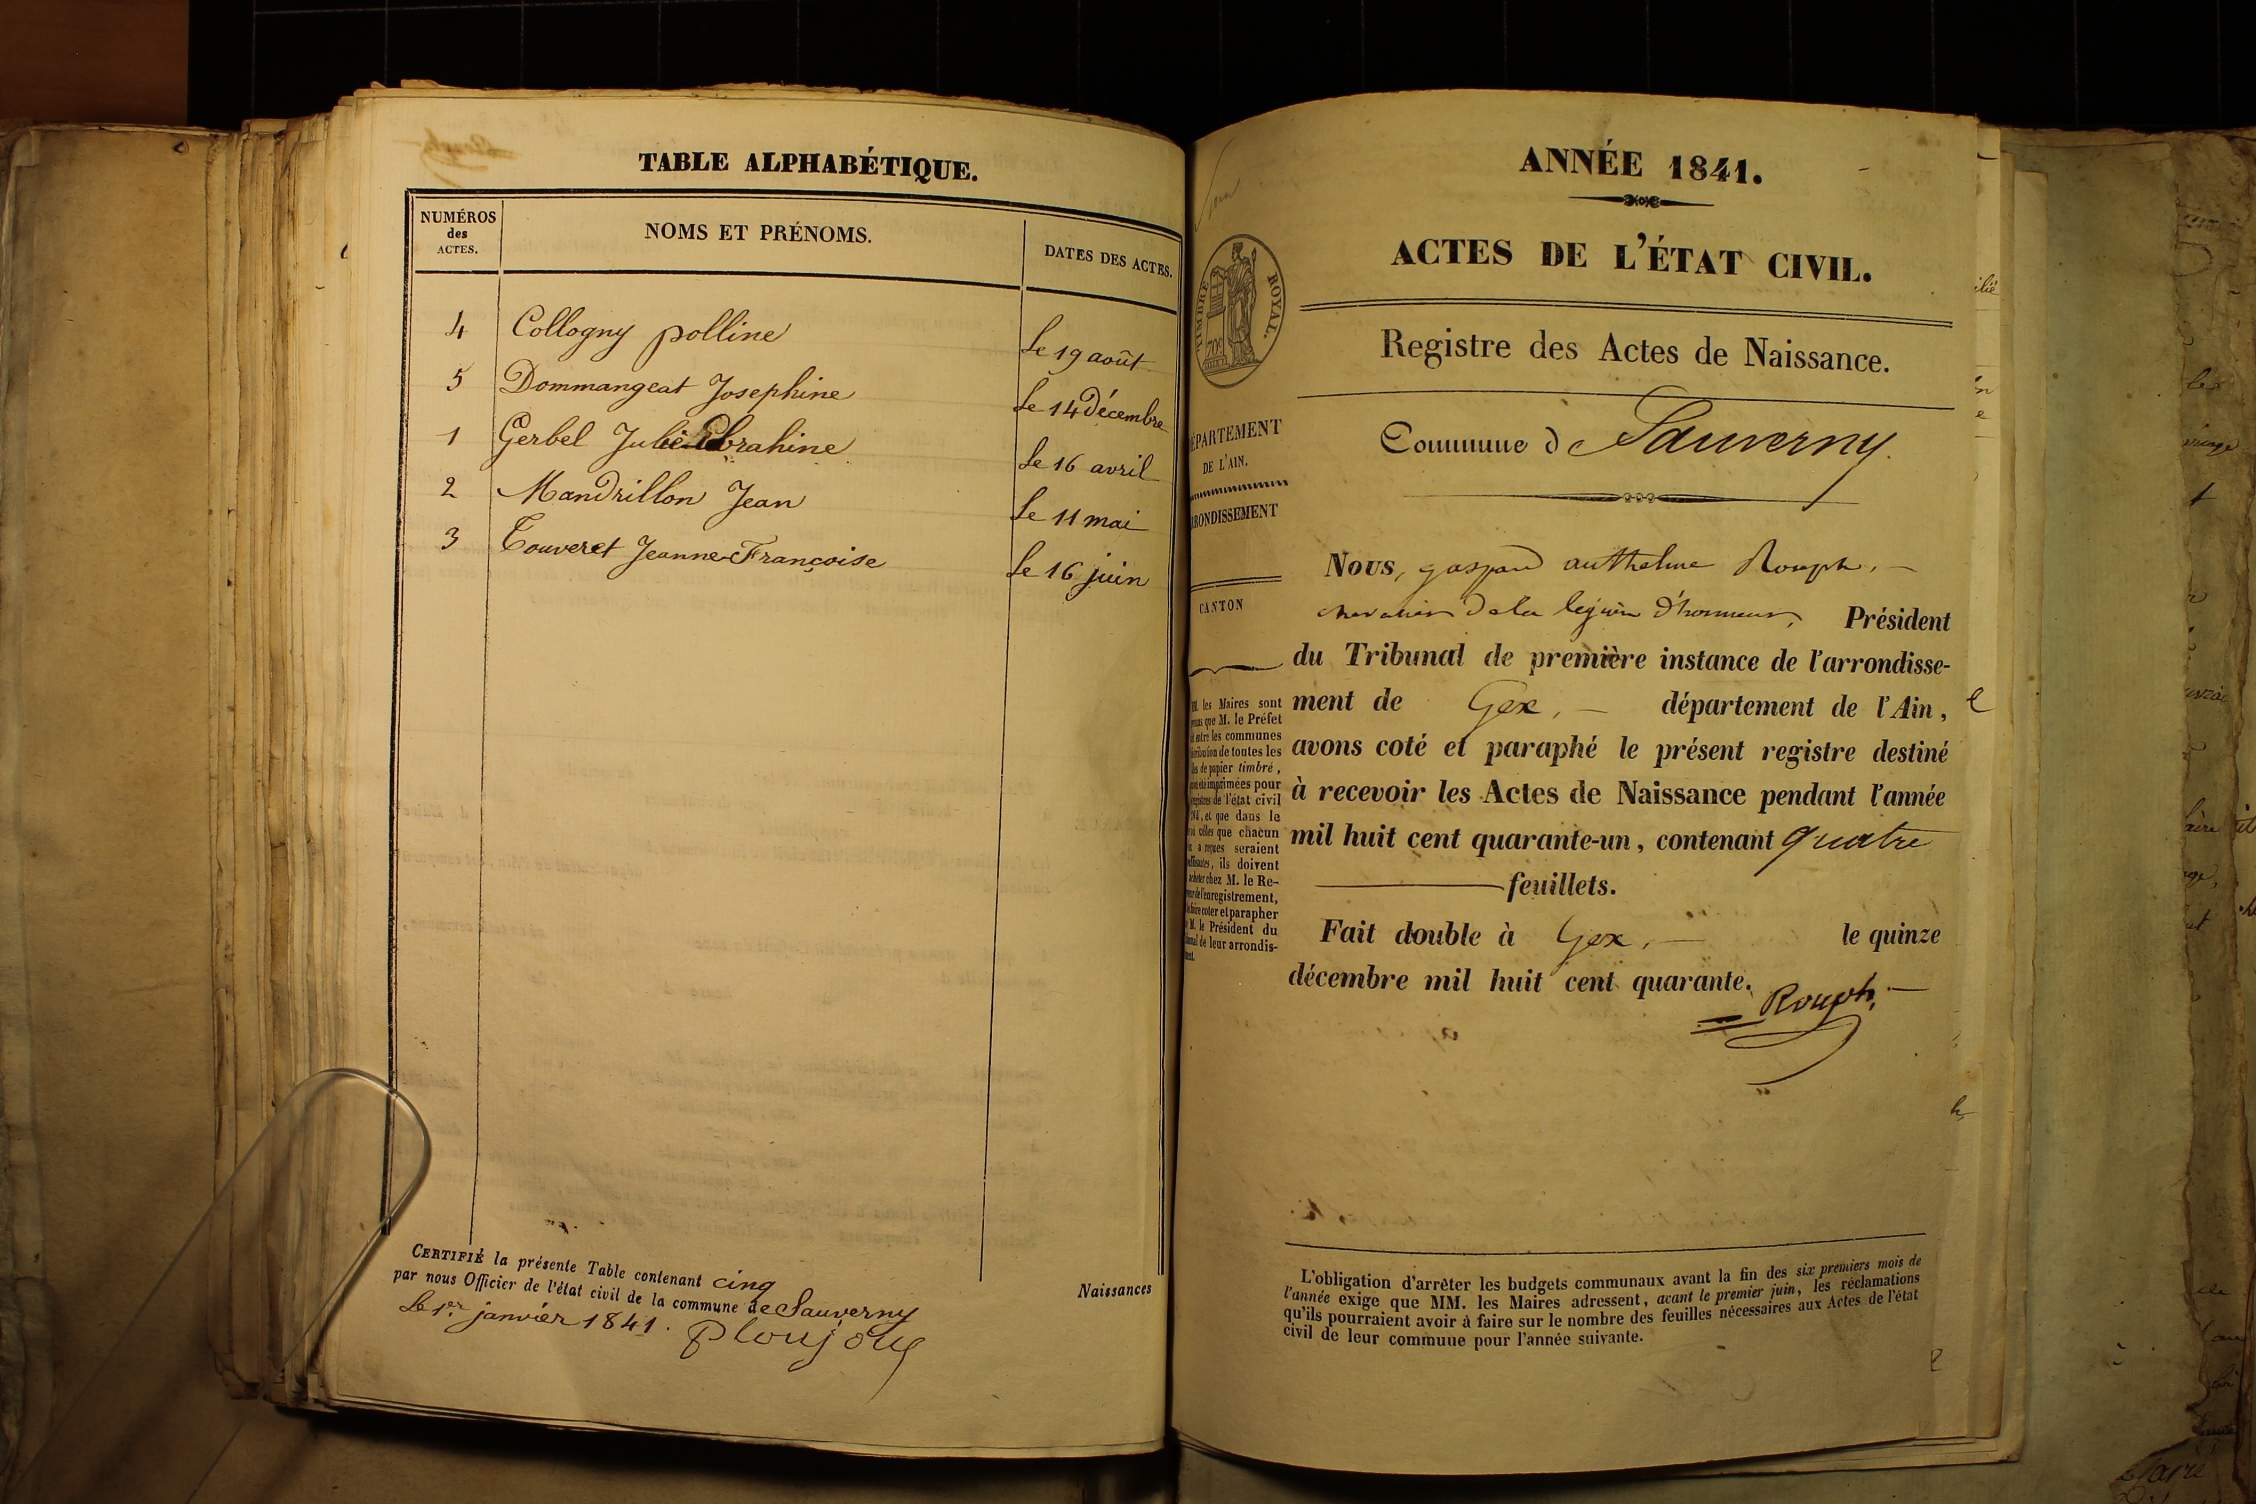 TABLE ALPHABÉTIQUE.
NUMÉROS
des
ACTES.
NOMS ET PRÉNOMS.
DATES DES ACTES.
4 Collogny polline Le 19 août
5 Dommangeat Josephine Le 14 décembre
1 Gerbel Julie Le 16 avril
2 Mandrillon Jean Le 11 mai
3 Touveret Jeanne-Françoise Le 16 juin
CERTIFIÉ la présente Table contenant cinq
par nous Officier de l'état civil de la commune de Sauverny
Le 1er janvier 1841.
Naissances
ANNÉE 1841.
ACTES DE L'ÉTAT CIVIL.
TIMBRE ROYAL.
70c
Registre des Actes de Naissance.
DÉPARTEMENT
DE L'AIN.
ARRONDISSEMENT
CANTON
Commune de Sauverny.
Nous, gaspard anthelme Rouph,
chevalier de la legion d'honneur, Président
du Tribunal de première instance de l'arrondisse-
ment de Gex, département de l'Ain,
avons coté et paraphé le présent registre destiné
à recevoir les Actes de Naissance pendant l'année
mil huit cent quarante-un, contenant quatre
feuillets.
Fait double à Gex, le quinze
décembre mil huit cent quarante.
Rouph,
les Maires sont
que M. le Préfet
entre les communes
de toutes les
de papier timbré,
imprimées pour
de l'état civil
, et que dans le
celles que chacun
a reçues seraient
, ils doivent
chez M. le Re-
de l'enregistrement,
coter et parapher
M. le Président du
de leur arrondis-
L'obligation d'arrêter les budgets communaux avant la fin des six premiers mois de
l'année exige que MM. les Maires adressent, avant le premier juin, les réclamations
qu'ils pourraient avoir à faire sur le nombre des feuilles nécessaires aux Actes de l'état
civil de leur commune pour l'année suivante.